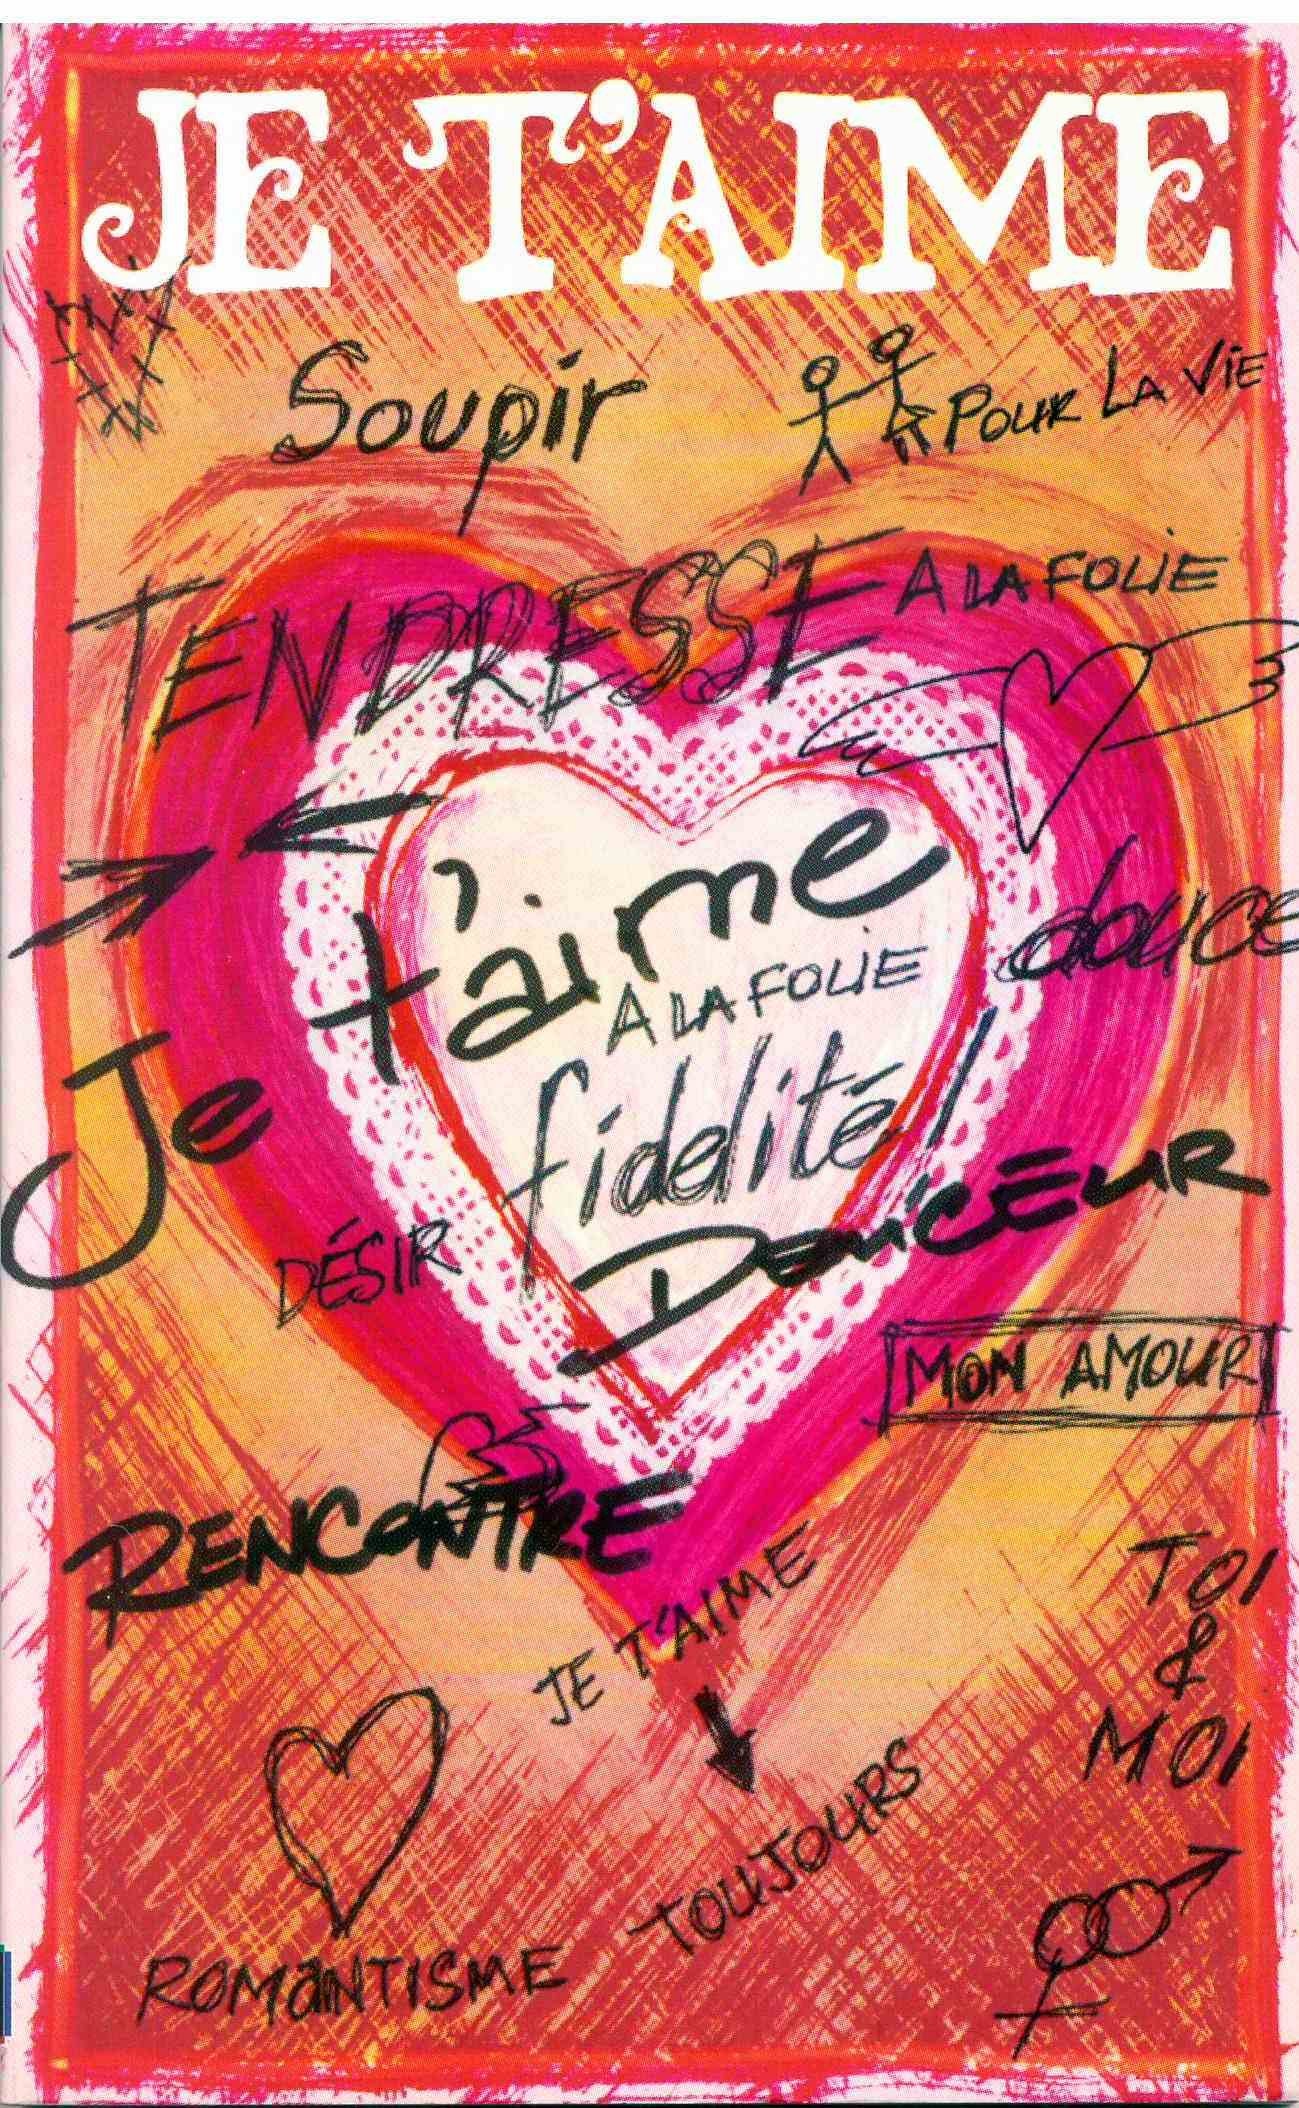 JE T'AIME
Soupir
POUR LA VIE
TENDRESSE
A LA FOLIE
t'aime
douce
A LA FOLIE
Je
fidélité
DOUCEUR
DÉSIR
MON AMOUR
RENCONTRE
TOI
&
MOI
JE T'AIME
TOUJOURS
ROMANTISME